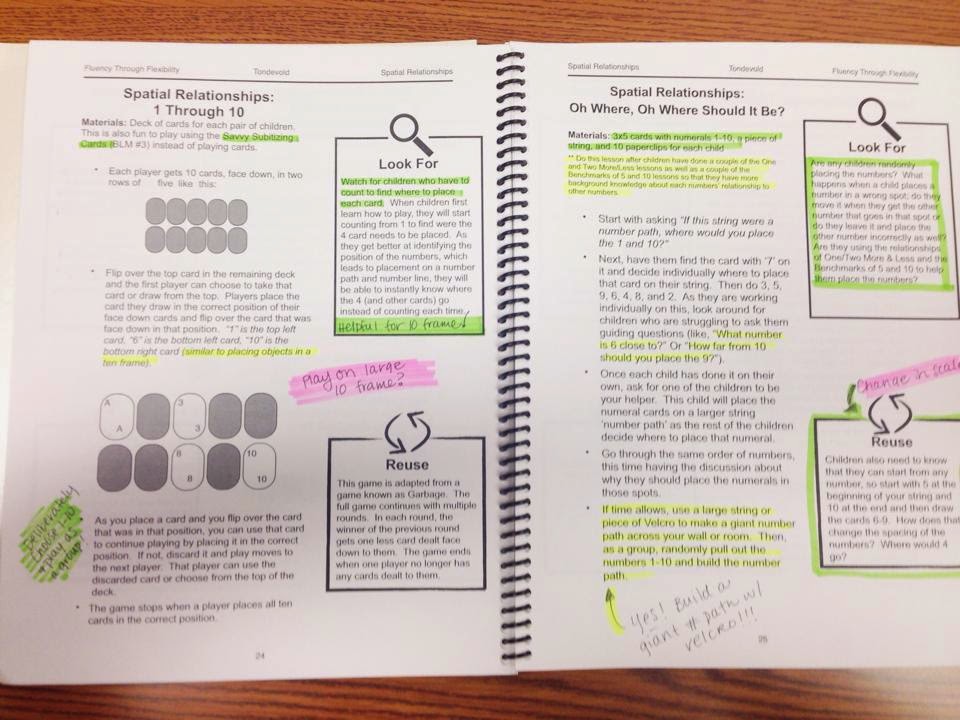 Fluency Through Flexibility Tondevold Spatial Relationships
Spatial Relationships:
1 Through 10
Materials: Deck of cards for each pair of children.
This is also fun to play using the Savvy Subitizing
Cards (BLM #3) instead of playing cards.
• Each player gets 10 cards, face down, in two
rows of five like this:
• Flip over the top card in the remaining deck
and the first player can choose to take that
card or draw from the top. Players place the
card they draw in the correct position of their
face down cards and flip over the card that was
face down in that position. "1" is the top left
card, "6" is the bottom left card, "10" is the
bottom right card (similar to placing objects in a
ten frame).
A 3
A 3
8 10
8 10
As you place a card and you flip over the card
that was in that position, you can use that card
to continue playing by placing it in the correct
position. If not, discard it and play moves to
the next player. That player can use the
discarded card or choose from the top of the
deck.
• The game stops when a player places all ten
cards in the correct position.
Look For
Watch for children who have to
count to find where to place
each card. When children first
learn how to play, they will start
counting from 1 to find were the
4 card needs to be placed. As
they get better at identifying the
position of the numbers, which
leads to placement on a number
path and number line, they will
be able to instantly know where
the 4 (and other cards) go
instead of counting each time.
Helpful for 10 frame!
Play on large
10 frame?
Reuse
This game is adapted from a
game known as Garbage. The
full game continues with multiple
rounds. In each round, the
winner of the previous round
gets one less card dealt face
down to them. The game ends
when one player no longer has
any cards dealt to them.
Deliberately
choose 1-10
+ play as
a group
24
Spatial Relationships Tondevold Fluency Through Flexibility
Spatial Relationships:
Oh Where, Oh Where Should It Be?
Materials: 3x5 cards with numerals 1-10, a piece of
string, and 10 paperclips for each child
** Do this lesson after children have done a couple of the One
and Two More/Less lessons as well as a couple of the
Benchmarks of 5 and 10 lessons so that they have more
background knowledge about each numbers' relationship to
other numbers.
• Start with asking "If this string were a
number path, where would you place
the 1 and 10?"
• Next, have them find the card with '7' on
it and decide individually where to place
that card on their string. Then do 3, 5,
9, 6, 4, 8, and 2. As they are working
individually on this, look around for
children who are struggling to ask them
guiding questions (like, "What number
is 6 close to?" Or "How far from 10
should you place the 9?").
• Once each child has done it on their
own, ask for one of the children to be
your helper. This child will place the
numeral cards on a larger string
'number path' as the rest of the children
decide where to place that numeral.
• Go through the same order of numbers,
this time having the discussion about
why they should place the numerals in
those spots.
• If time allows, use a large string or
piece of Velcro to make a giant number
path across your wall or room. Then,
as a group, randomly pull out the
numbers 1-10 and build the number
path.
Yes! Build a
giant # path w/
velcro!!!
Look For
Are any children randomly
placing the numbers? What
happens when a child places a
number in a wrong spot; do they
move it when they get the other
number that goes in that spot or
do they leave it and place the
other number incorrectly as well?
Are they using the relationships
of One/Two More & Less and the
Benchmarks of 5 and 10 to help
them place the numbers?
Change in scale
Reuse
Children also need to know
that they can start from any
number, so start with 5 at the
beginning of your string and
10 at the end and then draw
the cards 6-9. How does that
change the spacing of the
numbers? Where would 4
go?
25